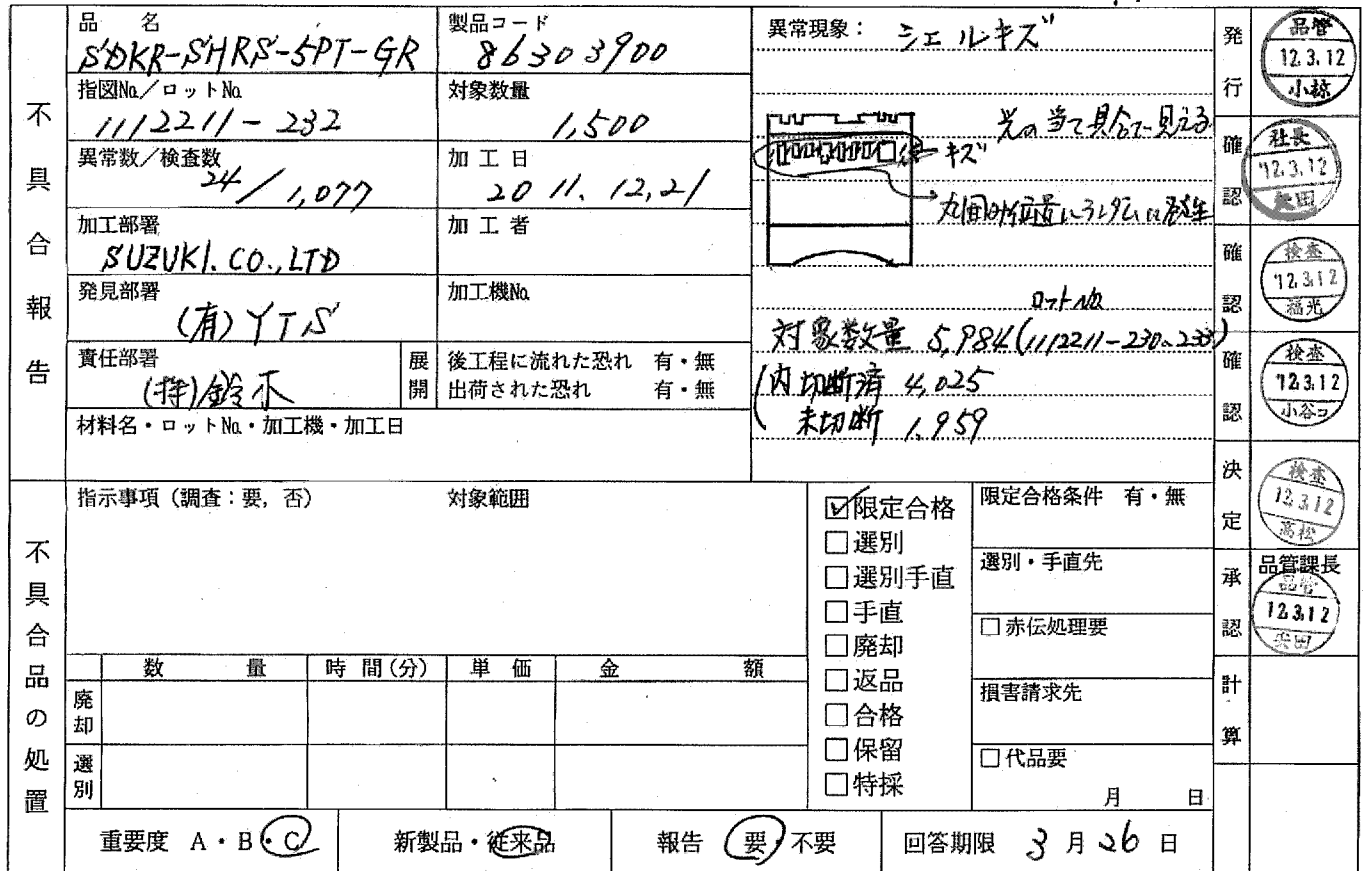 不具合報告
品名
SDKR-SHRS-5PT-GR
製品コード
86303900
指図No./ロットNo.
1112211-232
対象数量
1,500
異常数/検査数
24/1,077
加工日
2011.12.21
加工部署
SUZUKI.CO.,LTD
加工者
発見部署
(有)YTS
加工機No.
責任部署
(株)鈴木
展開
後工程に流れた恐れ 有・無
出荷された恐れ 有・無
材料名・ロットNo.・加工機・加工日
異常現象: シェルキズ
光の当て具合で見える
キズ
ロットNo.
対象数量 5,984(1112211-230~233)
内 切断済 4,025
未切断 1,959
発行
品管
12.3.12
小椋
確認
社長
'12.3.12
矢田
確認
検査
'12.3.12
福光
確認
検査
'12.3.12
小谷コ
決定
検査
12.3.12
高松
承認
品管課長
品管
12.3.12
計算
不具合品の処置
指示事項(調査:要, 否)
対象範囲
☑限定合格
□選別
□選別手直
□手直
□廃却
□返品
□合格
□保留
□特採
限定合格条件 有・無
選別・手直先
□赤伝処理要
損害請求先
□代品要
月 日
数量 時間(分) 単価 金額
廃却
選別
重要度 A・B・C
新製品・従来品
報告 要・不要
回答期限 3月26日